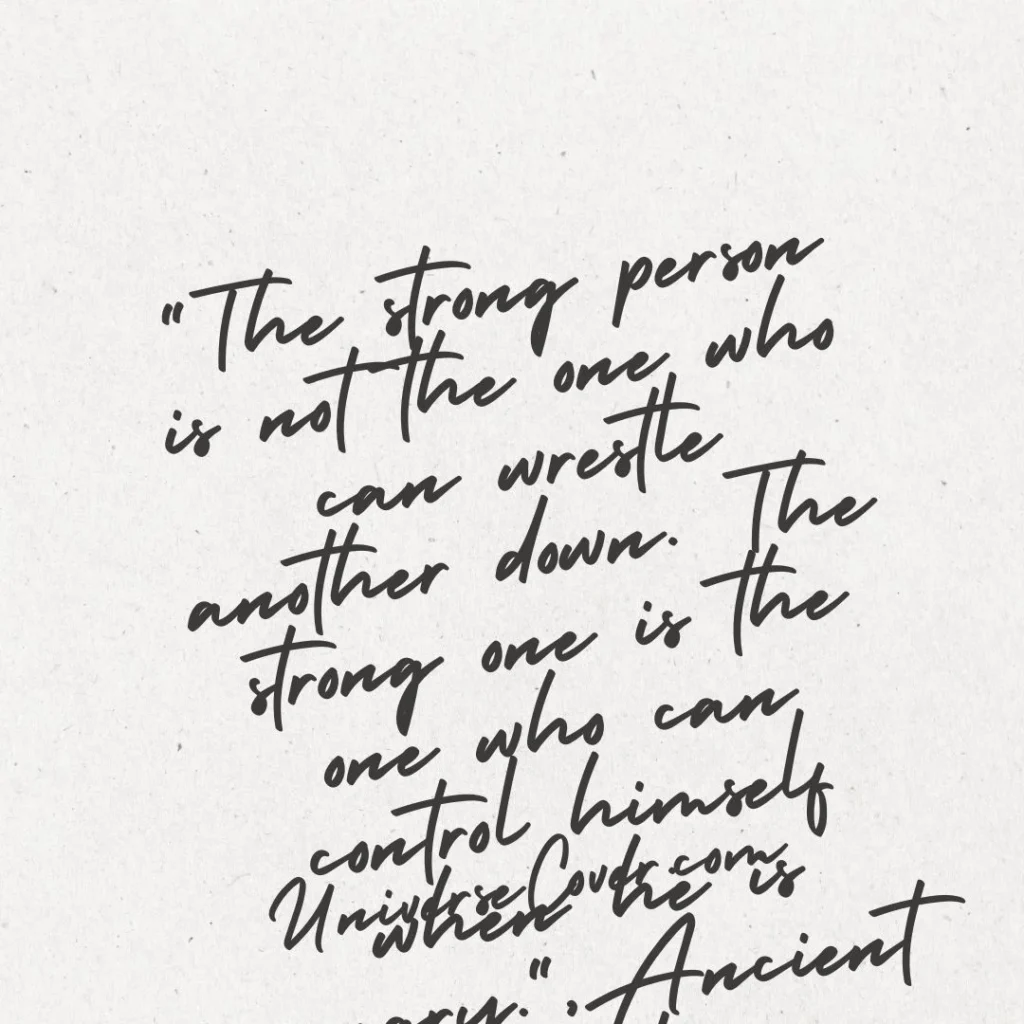 "The strong person
is not the one who
can wrestle
another down. The
strong one is the
one who can
control himself
UniverseCover.com
when he is
", Ancient